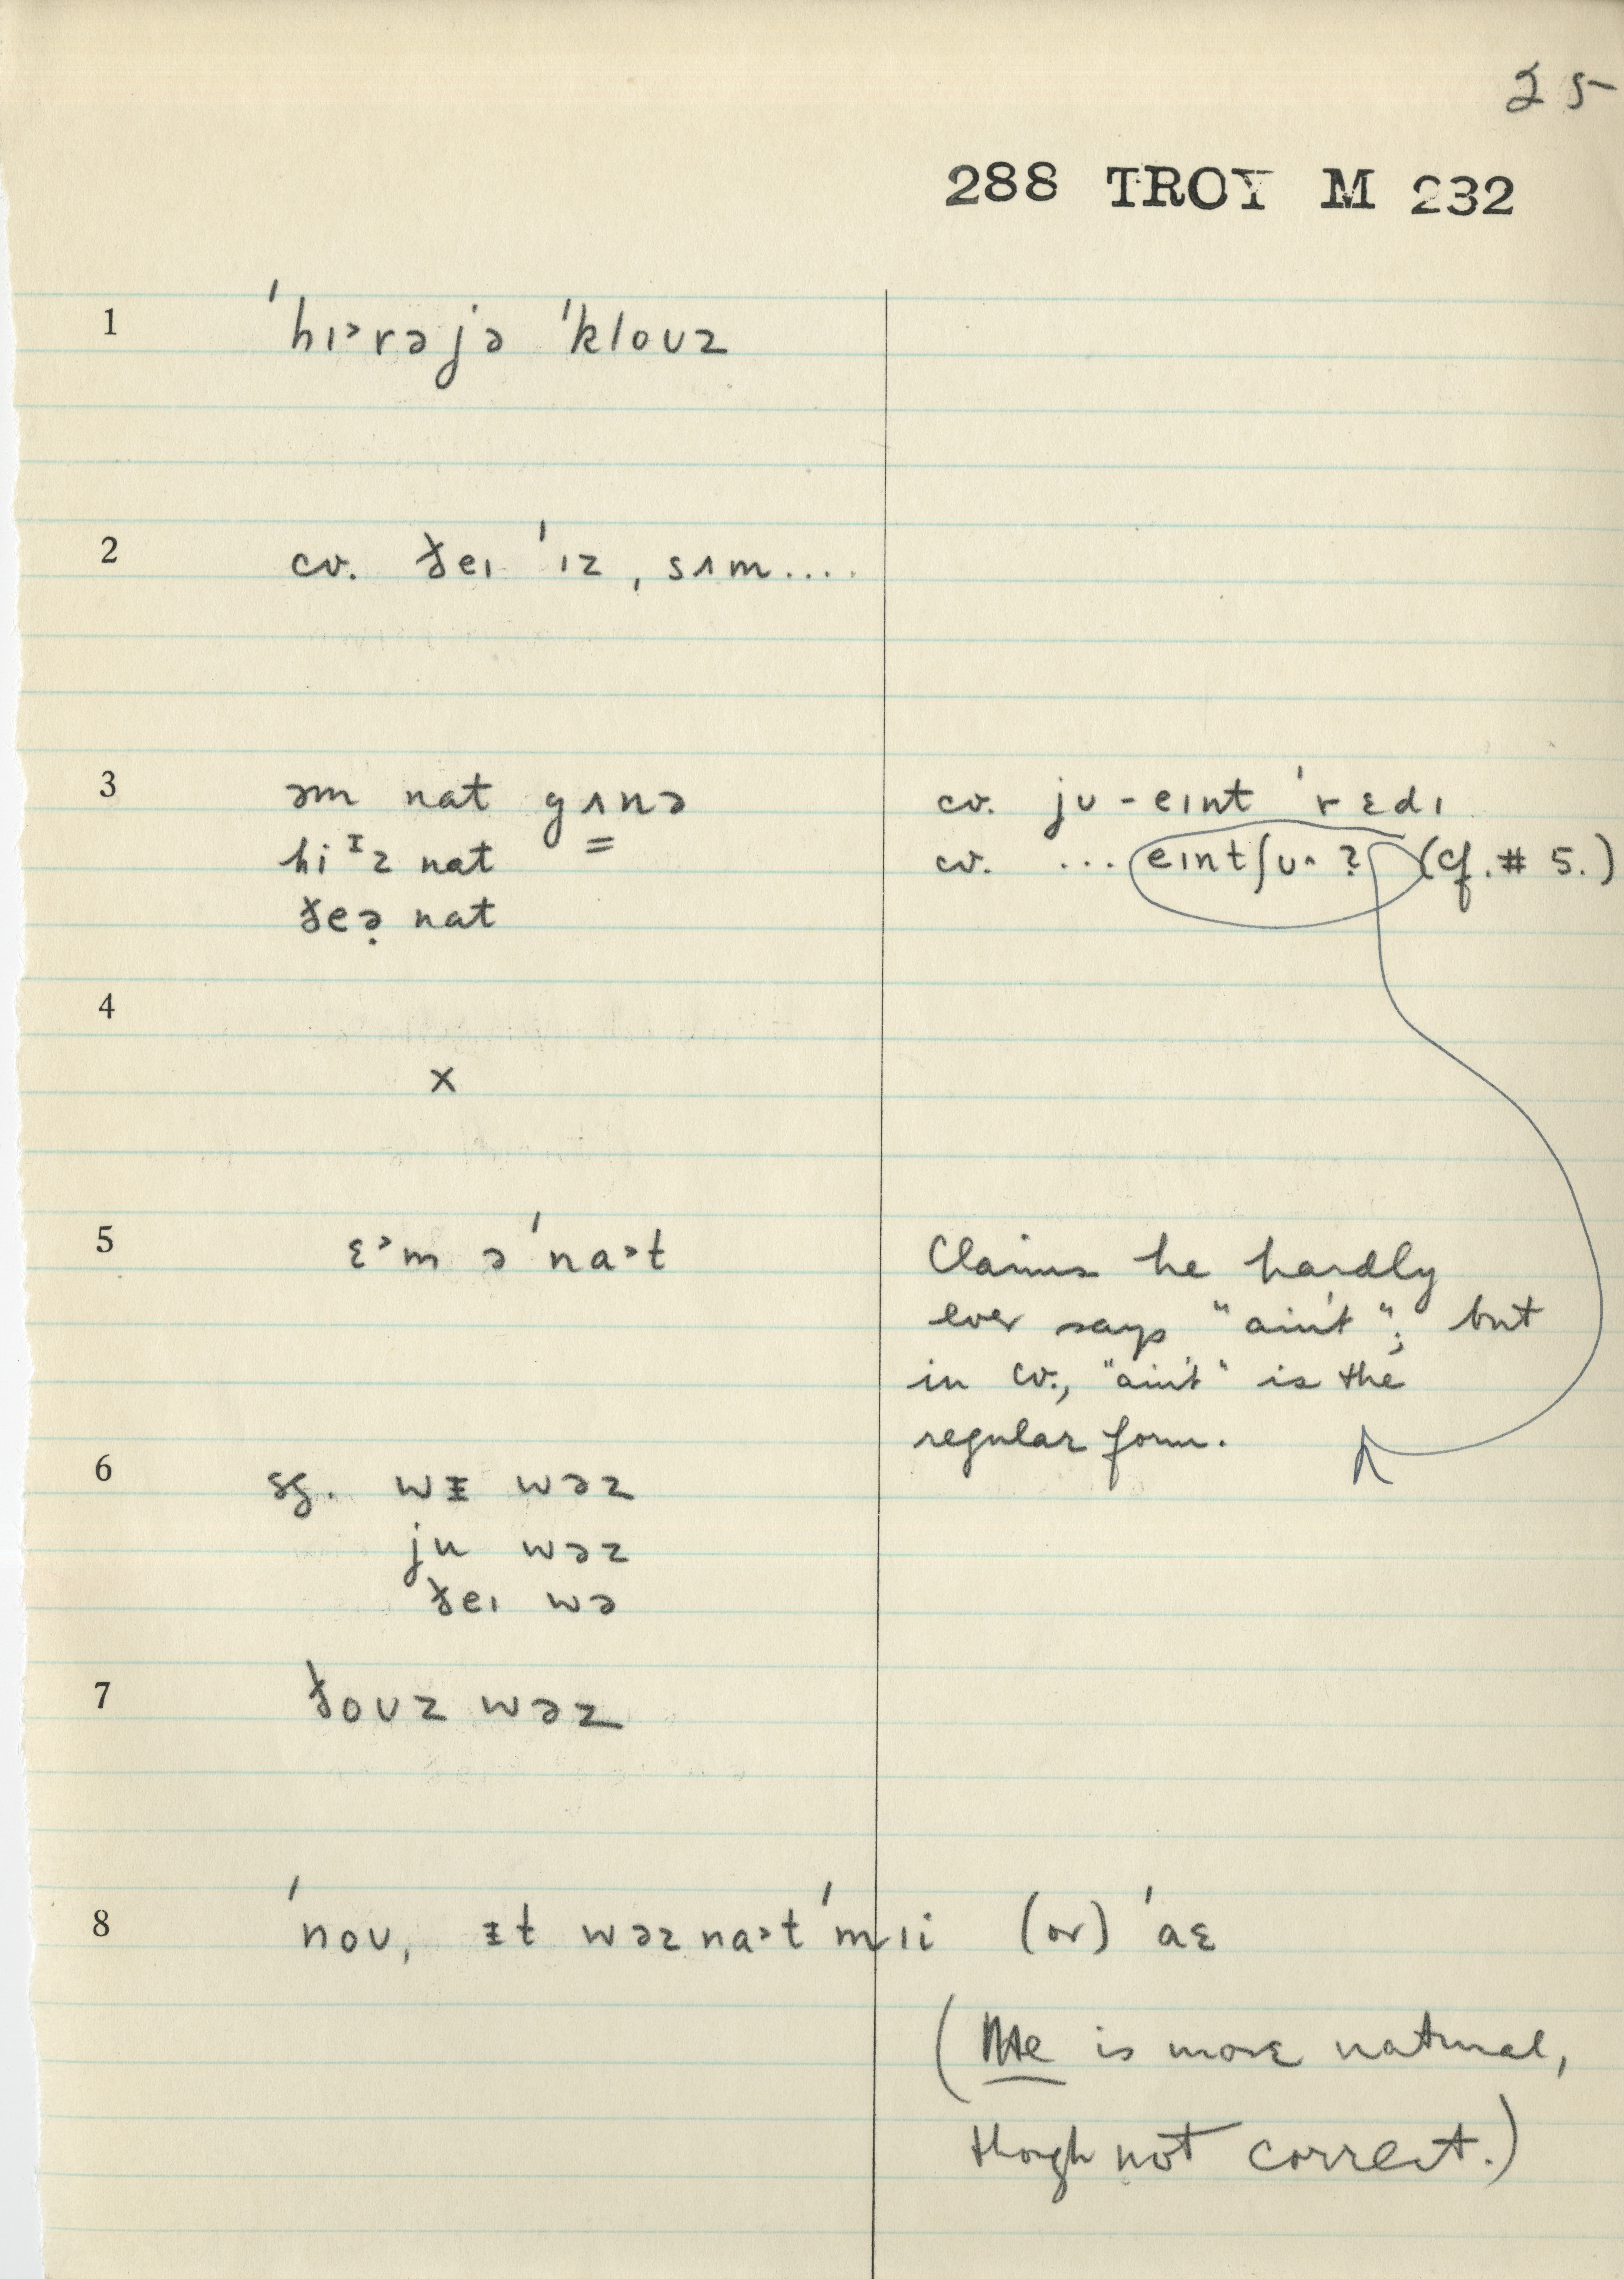 25
288 TROY M 232
1 ˈhɪᵊrəjə ˈkloʊz
2 cv. ðeɪ ˈɪz, sʌm....
3 əm nat gʌnə cv. jʊ-eɪnt ˈrɛdɪ
hi ᴵz nat cv. ...eɪntʃʊ^? (cf. # 5.)
ðeə̣ nat
4
x
5 ɛᵊm əˈnaᵊt Claims he hardly
ever says "ain't"; but
in cv., "ain't" is the
regular form.
6 sg. wᵻ wəz
ju wəz
ðeɪ wə
7 ðoʊz wəz
8 ˈnoʊ, ᵻt wəz naᵊt ˈmɪi (or) ˈaɛ
(Me is more natural,
though not correct.)